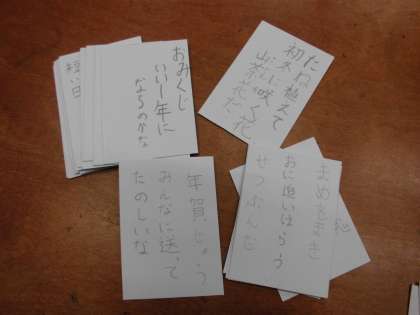 おみくじ
いい1年に
なるのかな
たね植えて
初冬に咲く花
山茶花だ
年賀じょう
みんなに送って
たのしいな
まめをまき
おに追いはらう
せつぶんだ
短い日